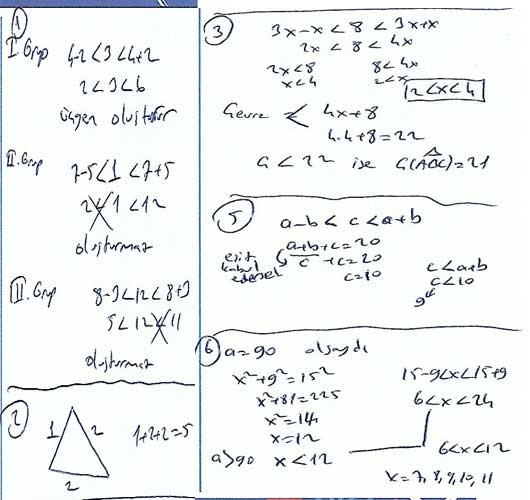 1
I. Grup 4-2<3<4+2
2<3<6
üçgen oluşturur
II. Grup 7-5<1<7+5
2<1<12
oluşturmaz
III. Grup 8-3<12<8+3
5<12<11
oluşturmaz
2
1 2 1+2+2=5
2
3
3x-x<8<3x+x
2x<8<4x
2x<8 8<4x
x<4 2<x
2<x<4
Çevre < 4x+8
4.4+8=22
a<22 ise Ç(ABC)=21
5
a-b<c<a+b
a+b+c=20
eşit kabul edersek
c+c=20
c=10
c<a+b
c<10
9
6
a=90 olsaydı
x²+9²=15²
x²+81=225
x²=14
x=12
a>90 x<12
15-9<x<15+9
6<x<24
6<x<12
x=7,8,9,10,11